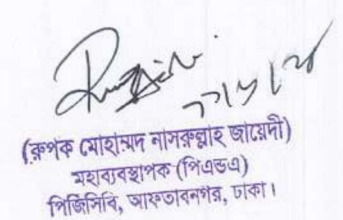 (রূপক মোহাম্মদ নাসরুল্লাহ জায়েদী)
মহাব্যবস্থাপক (পিএন্ডএ)
পিজিসিবি, আফতাবনগর, ঢাকা।